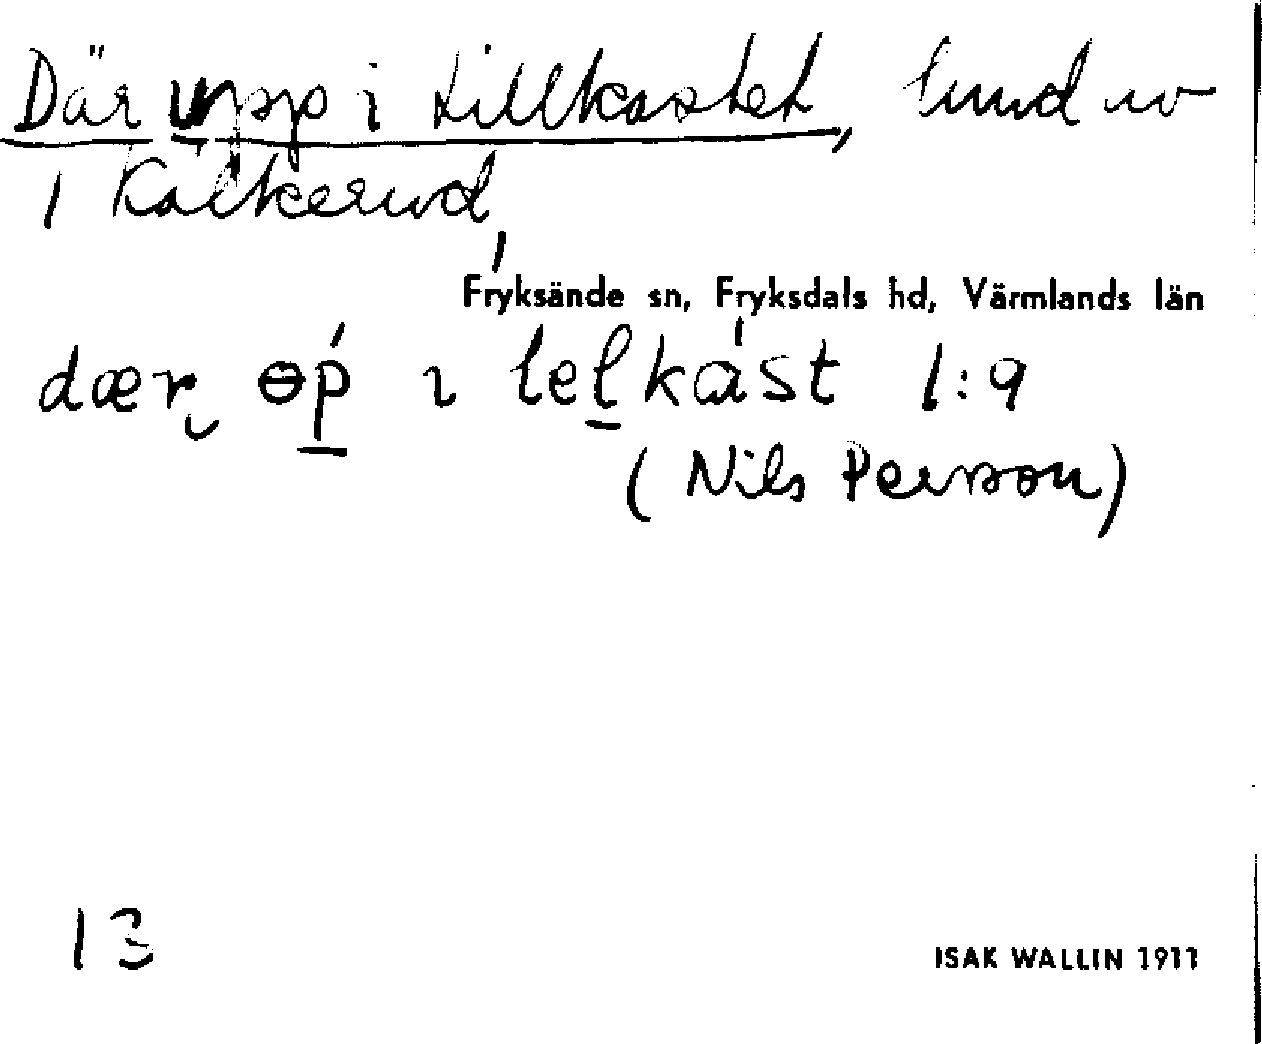 Där upp i tillkastet, lund av
i Kälkerud,
Fryksände sn, Fryksdals hd, Värmlands län
dær ɵp ı telkást 1:9
(Nils Persson)
13
ISAK WALLIN 1911